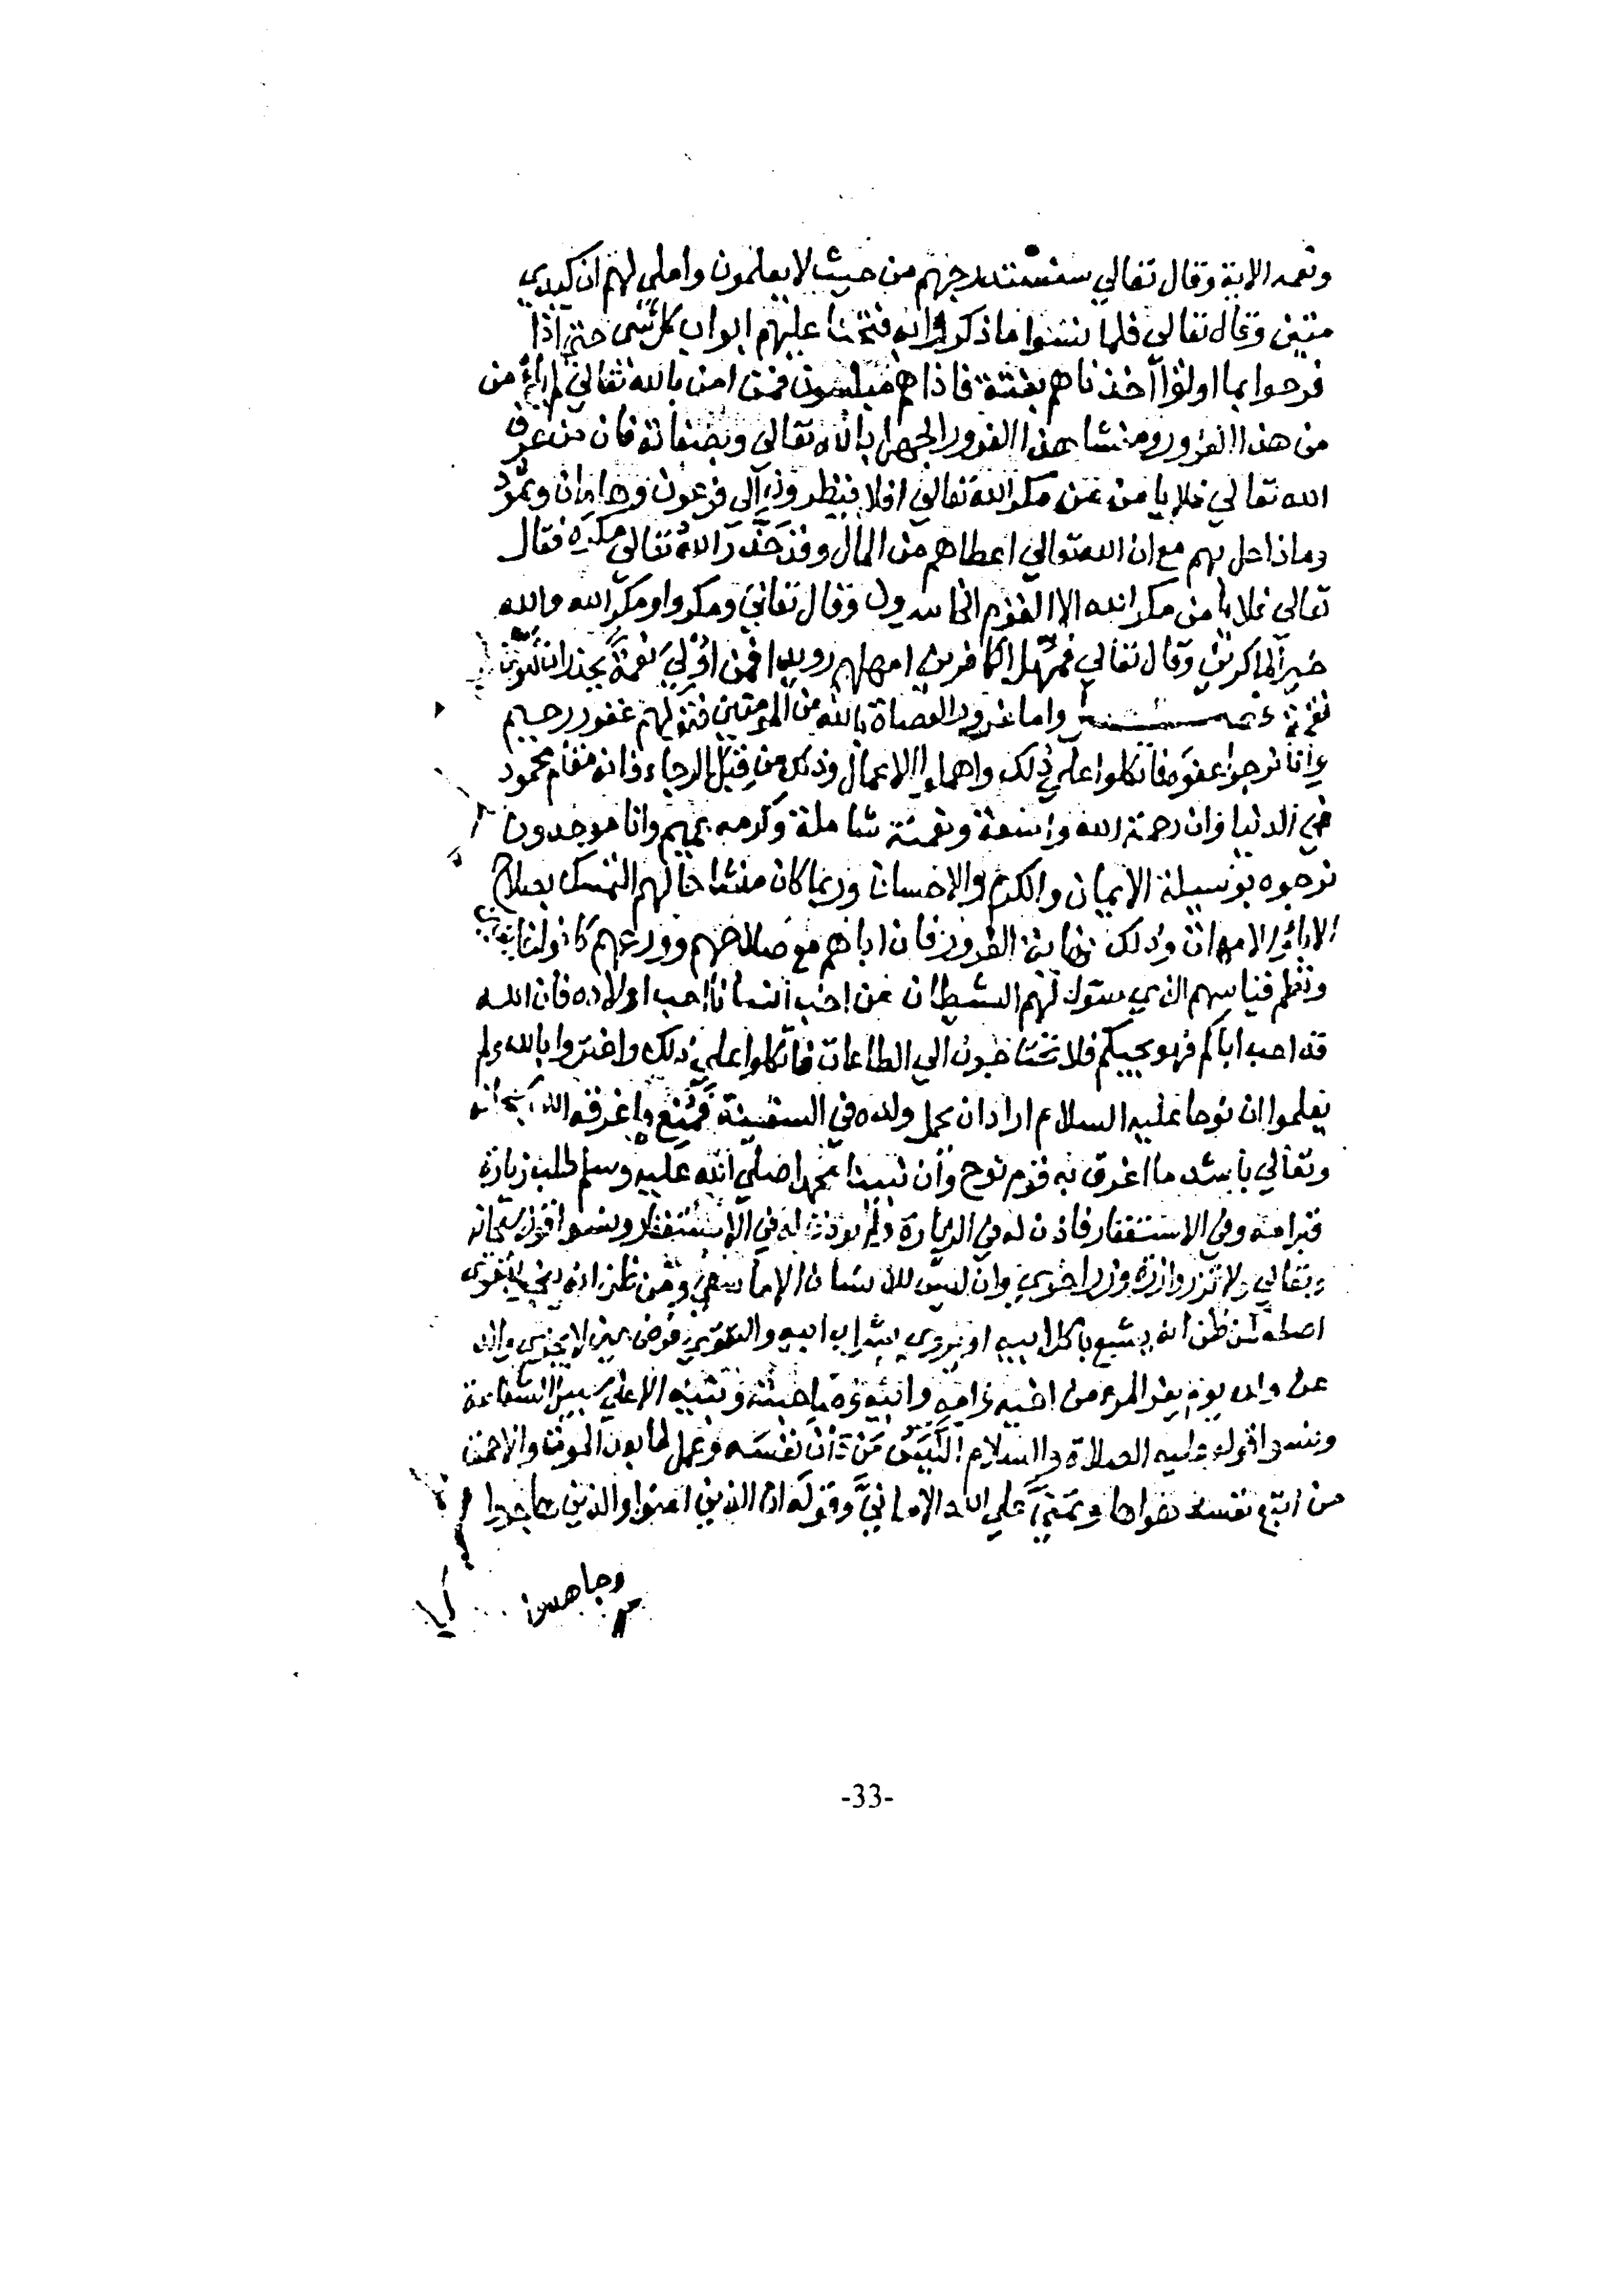 ونعمه الاية وقال تعالي سنستدرجهم من حيث لا يعلمون واملي لهم ان كيدي
متين وقال تعالي فلما نسوا ما ذكروا به فتحنا عليهم ابواب كل شي حتي اذا
فرحوا بما اوتوا اخذناهم بغتة فاذا هم مبلسون فمن امن بالله تعالي لم من
من هذا الغرور ومنشا هذا الغرور الجهل بالله تعالي وبصفاته فان من عرف
الله تعالي فلا يامن من مكر الله تعالي افلا ينظرون الي فرعون وهامان ونمرود
وماذا حل بهم مع ان الله تعالي اعطاهم من المال وقد حَذَّرَ اللهُ تعالي مكره فقال
تعالي فلا يامن مكر الله الا القوم الخاسرون وقال تعالي ومكروا ومكر الله والله
خير الماكرين وقال تعالي فمهل الكافرين امهلهم رويدا فمن اولي نعمة يحذر ان تكون
نقمة واما غرور العصاة بالله من المومنين فقولهم غفور رحيم
وانا نرجوا عفوه فاتكلوا علي ذلك واهملوا الاعمال وذلك من قِبَل الرجاء فانه مقام محمود
في الدنيا وان رحمة الله واسعة ونعمته شاملة وكرمه عميم وانا موحدون
نرجوه بوسيلة الايمان والكرم والاحسان وربما كان منشا حالهم التمسك بصلاح
الاباء والامهات وذلك نهاية الغرور فان اباهم مع صلاحهم وورعهم كانوا خايفين
ونظم قياسهم الذي سول لهم الشيطان من احب انسانا احب اولاده فان الله
قد احب اباكم فهو يحبكم فلا تحتاجون الي الطاعات فاتكلوا علي ذلك واغتروا بالله ولم
يعلموا ان نوحا عليه السلام اراد ان يحمل ولده في السفينة فمنع واغرقه الله سبحانه
وتعالي باشد ما اغرق به قوم نوح وان نبينا محمدا صلي الله عليه وسلم طلب زيارة
قبر امه وفي الاستغفار فاذن له في الزيارة ولم يوذن له في الاستغفار ونسوا قوله سبحانه
وتعالي ولا تزر وازرة وزر اخري وان ليس للانسان الا ما سعي ومن ظن انه ينجو بتقوي
اصله كمن ظن انه يشبع باكل ابيه او يروي بشراب ابيه والتقوي فرض عين لا يجزي والد
عن ولده يوم يفر المرء من اخيه وامه وابيه وصاحبته وبنيه الا علي سبيل الشفاعة
ونسوا قوله عليه الصلاة والسلام الكَيِّسُ مَن دَانَ نفسَه وعمل لما بعد الموت والاحمق
من اتبع نفسه هواها وتمني علي الله الاماني وقوله ان الذين امنوا والذين هاجروا
وجاهدوا
-33-